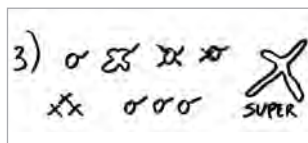 3)
SUPER